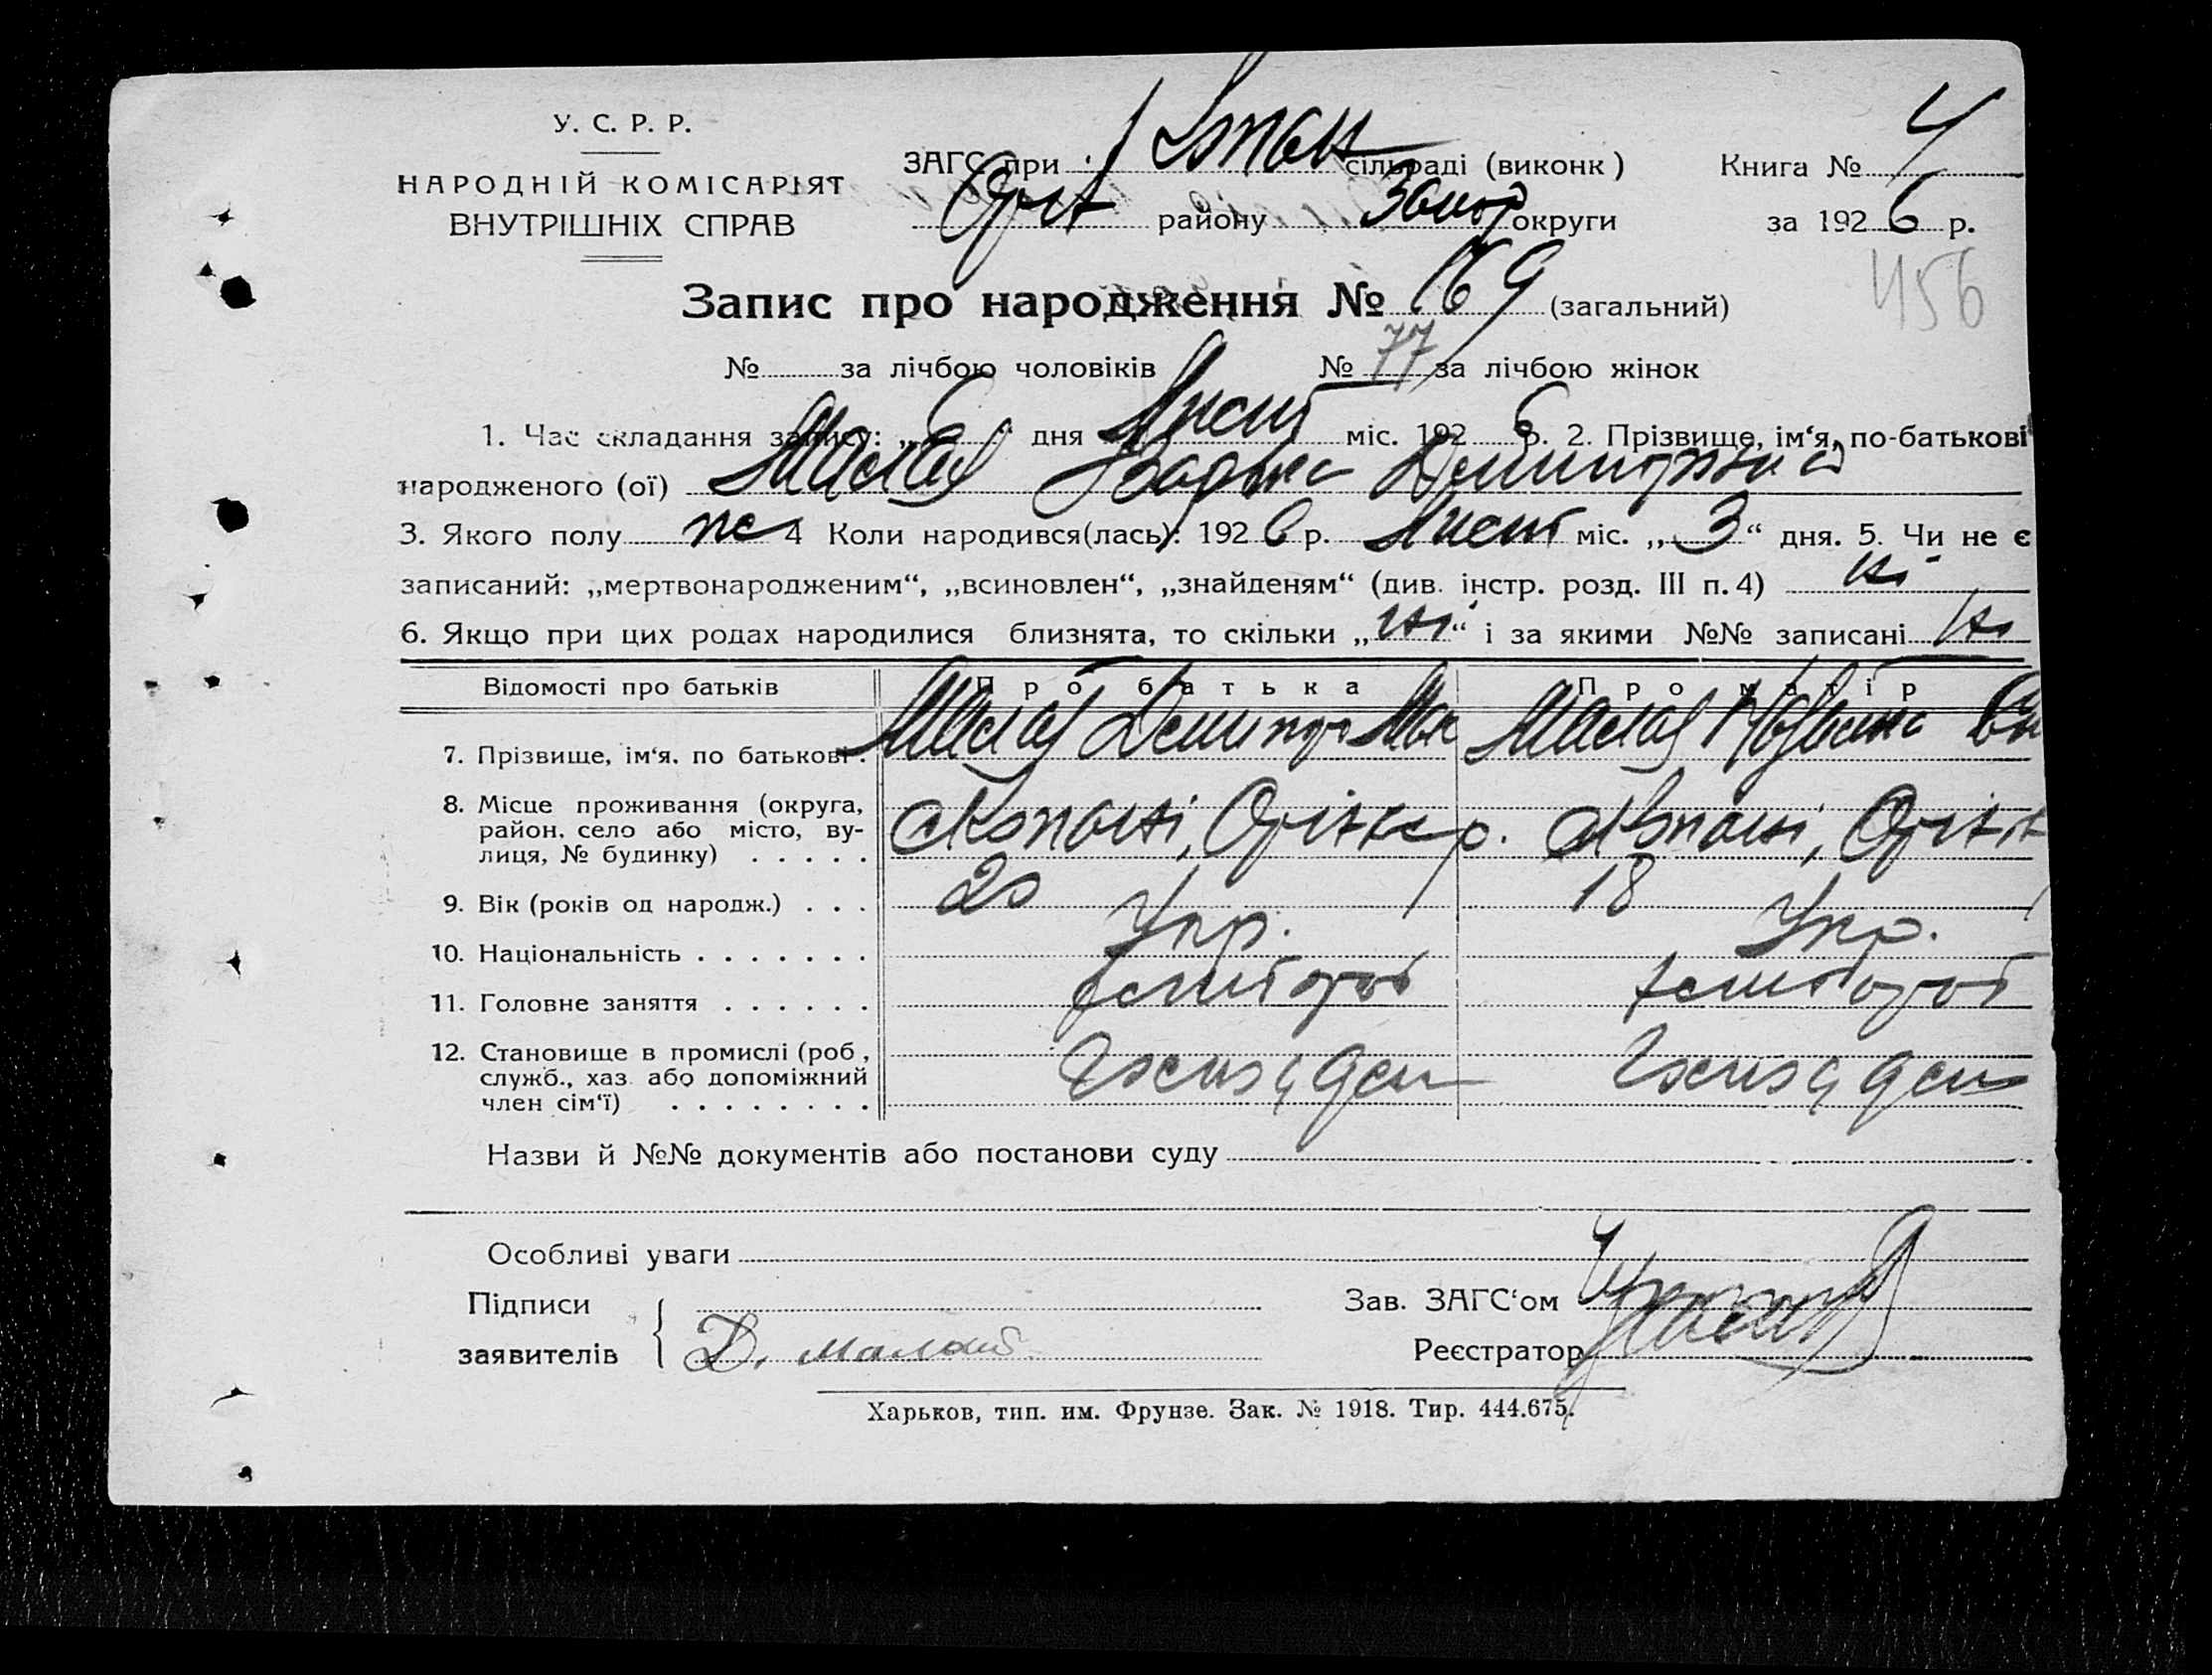 У. С. Р. Р.
НАРОДНІЙ КОМІСАРІЯТ
ВНУТРІШНІХ СПРАВ
ЗАГС при сільраді (виконк)
Оріх району Запор округи
Книга № 4
за 1926 р.
456
Запис про народження № 169 (загальний)
№ за лічбою чоловіків № 77 за лічбою жінок
1. Час складання запису: „6“ дня Лист міс. 1926 р. 2. Прізвище, ім‘я, по-батькові
народженого (ої) Малая Дмитровна
3. Якого полу ж 4 Коли народився(лась): 1926 р. Лист міс. „3“ дня. 5. Чи не є
записаний: „мертвонародженим“, „всиновлен“, „знайденям“ (див. інстр. розд. III п. 4) ні
6. Якщо при цих родах народилися близнята, то скільки „ні“ і за якими №№ записані ні
Відомості про батьків Про батька Про матір
7. Прізвище, ім‘я, по батькові. Малай Дмитро Мак Малая
8. Місце проживання (округа, район, село або місто, вулиця, № будинку) . . . . . с Копані, Оріхів р. с Копані, Оріхів
9. Вік (років од народж.) . . . 20 18
10. Національність . . . . . . . Укр. Укр.
11. Головне заняття . . . . . . хлібороб хлібороб
12. Становище в промислі (роб, служб., хаз. або допоміжний член сім‘ї) . . . . . . . .
Назви й №№ документів або постанови суду
Особливі уваги
Підписи
заявителів Д. Малай
Зав. ЗАГС‘ом
Реєстратор
Харьков, тип. им. Фрунзе. Зак. № 1918. Тир. 444.675.